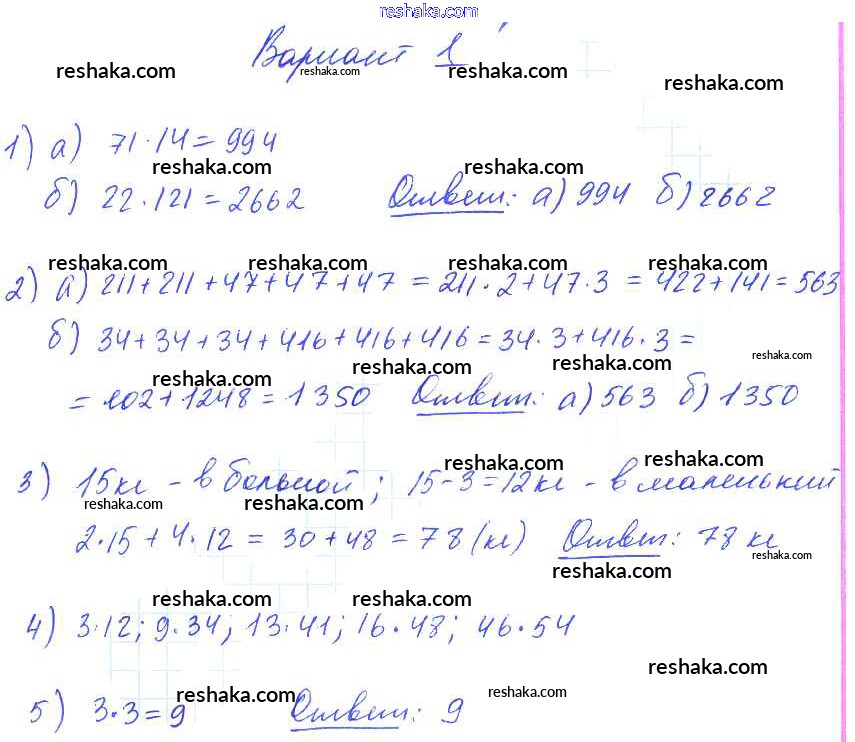 reshaka.com
Вариант 1
reshaka.com reshaka.com reshaka.com
1) а) 71·14=994
reshaka.com reshaka.com
б) 22·121=2662 Ответ: а) 994 б) 2662
reshaka.com reshaka.com reshaka.com reshaka.com
2) а) 211+211+47+47+47=211·2+47·3=422+141=563
б) 34+34+34+416+416+416=34·3+416·3=
reshaka.com reshaka.com reshaka.com reshaka.com
=102+1248=1350 Ответ: а) 563 б) 1350
reshaka.com reshaka.com
3) 15кг - в большой; 15-3=12кг - в маленький
reshaka.com reshaka.com reshaka.com
2·15+4·12=30+48=78(кг) Ответ: 78 кг
reshaka.com reshaka.com
reshaka.com reshaka.com
4) 3·12; 9·34; 13·41; 16·48; 46·54
reshaka.com
reshaka.com reshaka.com
5) 3·3=9 Ответ: 9